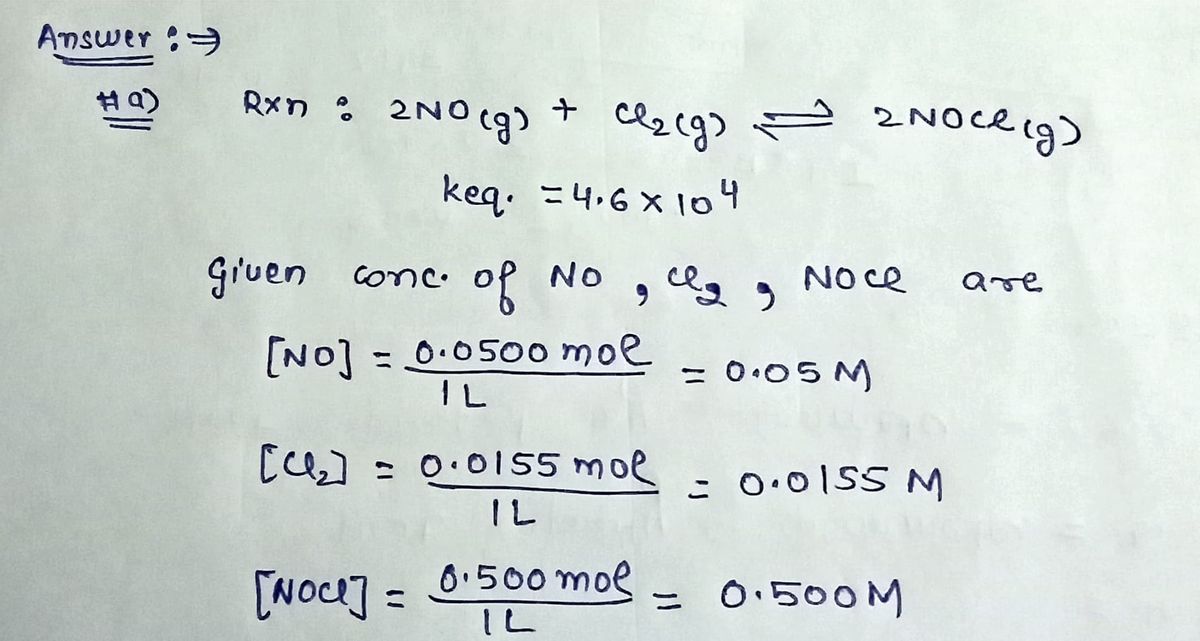 Answer :⇒
#a) Rxn : 2NO(g) + Cl₂(g) ⇌ 2NOCl(g)
keq. = 4.6 × 10⁴
Given conc. of NO , Cl₂ , NOCl are
[NO] = 0.0500 mol / 1L = 0.05 M
[Cl₂] = 0.0155 mol / 1L = 0.0155 M
[NOCl] = 0.500 mol / 1L = 0.500M